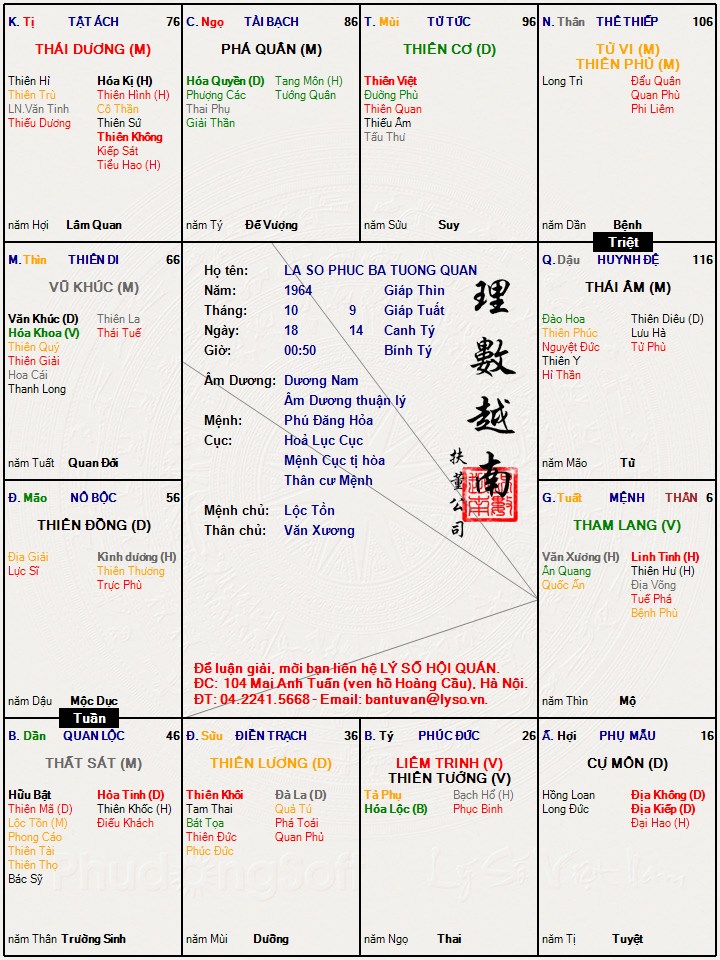 K. Tị TẬT ÁCH 76
THÁI DƯƠNG (M)
Thiên Hỉ
Thiên Trù
LN.Văn Tinh
Thiếu Dương
Hóa Kị (H)
Thiên Hình (H)
Cô Thần
Thiên Sứ
Thiên Không
Kiếp Sát
Tiểu Hao (H)
năm Hợi Lâm Quan
C. Ngọ TÀI BẠCH 86
PHÁ QUÂN (M)
Hóa Quyền (D)
Phượng Các
Thai Phụ
Giải Thần
Tang Môn (H)
Tướng Quân
năm Tý Đế Vượng
T. Mùi TỬ TỨC 96
THIÊN CƠ (D)
Thiên Việt
Đường Phù
Thiên Quan
Thiếu Âm
Tấu Thư
năm Sửu Suy
N. Thân THÊ THIẾP 106
TỬ VI (M)
THIÊN PHỦ (M)
Long Trì
Đẩu Quân
Quan Phù
Phi Liêm
năm Dần Bệnh
Triệt
M. Thìn THIÊN DI 66
VŨ KHÚC (M)
Văn Khúc (D)
Hóa Khoa (V)
Thiên Quý
Thiên Giải
Hoa Cái
Thanh Long
Thiên La
Thái Tuế
năm Tuất Quan Đới
Họ tên: LA SO PHUC BA TUONG QUAN
Năm: 1964 Giáp Thìn
Tháng: 10 9 Giáp Tuất
Ngày: 18 14 Canh Tý
Giờ: 00:50 Bính Tý
Âm Dương: Dương Nam
Âm Dương thuận lý
Mệnh: Phú Đăng Hỏa
Cục: Hoả Lục Cục
Mệnh Cục tị hòa
Thân cư Mệnh
Mệnh chủ: Lộc Tồn
Thân chủ: Văn Xương
理數越南
扶董公司
Để luận giải, mời bạn liên hệ LÝ SỐ HỘI QUÁN.
ĐC: 104 Mai Anh Tuấn (ven hồ Hoàng Cầu), Hà Nội.
ĐT: 04.2241.5668 - Email: bantuvan@lyso.vn.
Q. Dậu HUYNH ĐỆ 116
THÁI ÂM (M)
Đào Hoa
Thiên Phúc
Nguyệt Đức
Thiên Y
Hỉ Thần
Thiên Diêu (D)
Lưu Hà
Tử Phù
năm Mão Tử
Đ. Mão NÔ BỘC 56
THIÊN ĐỒNG (D)
Địa Giải
Lực Sĩ
Kình dương (H)
Thiên Thương
Trực Phù
năm Dậu Mộc Dục
Tuần
G. Tuất MỆNH THÂN 6
THAM LANG (V)
Văn Xương (H)
Ân Quang
Quốc Ấn
Linh Tinh (H)
Thiên Hư (H)
Địa Võng
Tuế Phá
Bệnh Phù
năm Thìn Mộ
B. Dần QUAN LỘC 46
THẤT SÁT (M)
Hữu Bật
Thiên Mã (D)
Lộc Tồn (M)
Phong Cáo
Thiên Tài
Thiên Thọ
Bác Sỹ
Hỏa Tinh (D)
Thiên Khốc (H)
Điếu Khách
năm Thân Trường Sinh
Đ. Sửu ĐIỀN TRẠCH 36
THIÊN LƯƠNG (D)
Thiên Khôi
Tam Thai
Bát Tọa
Thiên Đức
Phúc Đức
Đà La (D)
Quả Tú
Phá Toái
Quan Phủ
năm Mùi Dưỡng
B. Tý PHÚC ĐỨC 26
LIÊM TRINH (V)
THIÊN TƯỚNG (V)
Tả Phụ
Hóa Lộc (B)
Bạch Hổ (H)
Phục Binh
năm Ngọ Thai
Ấ. Hợi PHỤ MẪU 16
CỰ MÔN (D)
Hồng Loan
Long Đức
Địa Không (D)
Địa Kiếp (D)
Đại Hao (H)
năm Tị Tuyệt
Phudongsoft
Lý Số Việt Nam